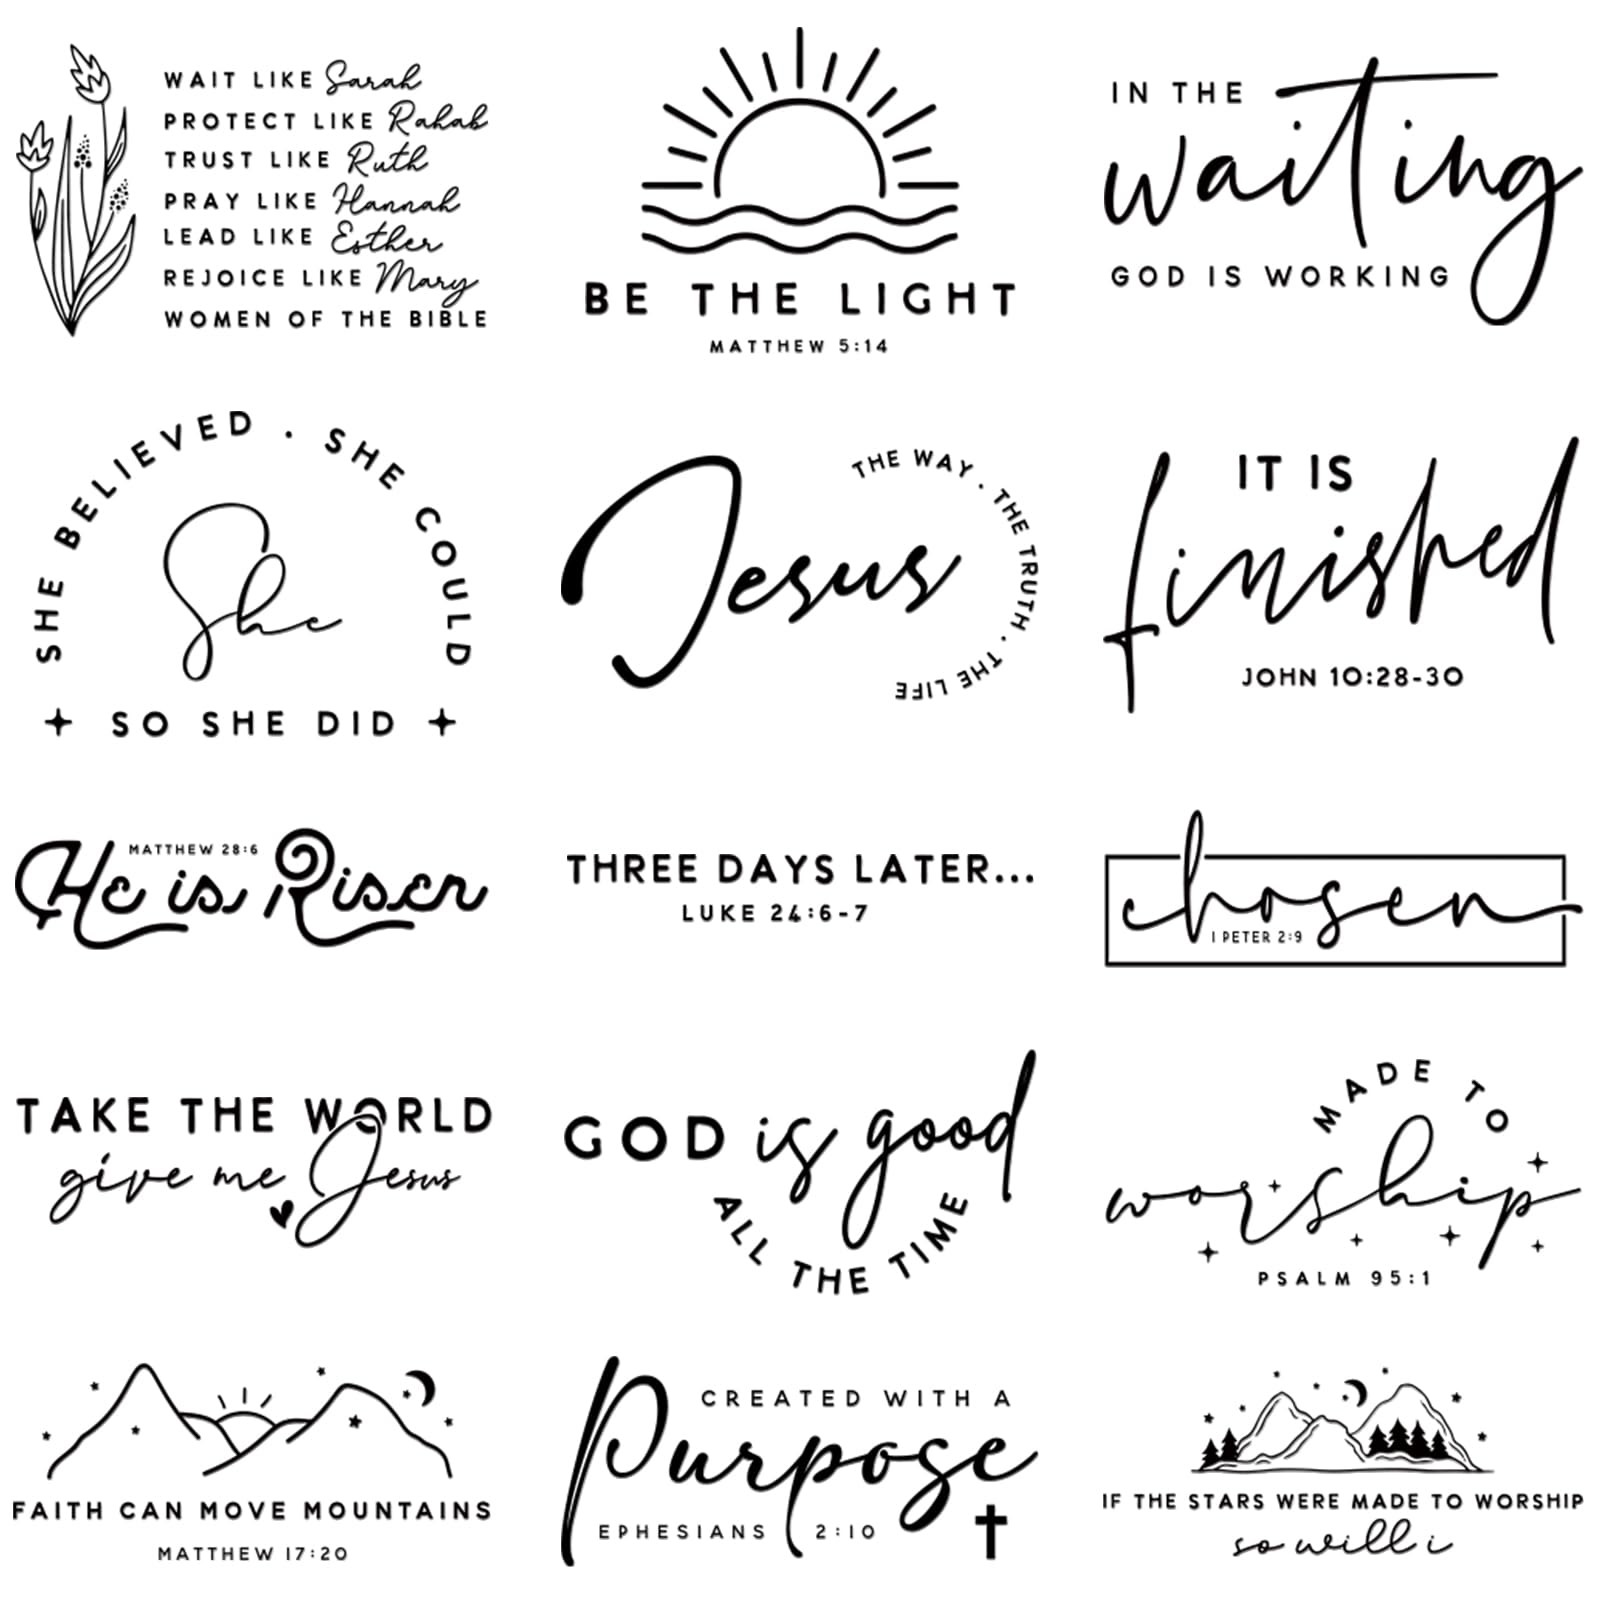 WAIT LIKE Sarah
PROTECT LIKE Rahab
TRUST LIKE Ruth
PRAY LIKE Hannah
LEAD LIKE Esther
REJOICE LIKE Mary
WOMEN OF THE BIBLE
BE THE LIGHT
MATTHEW 5:14
IN THE
waiting
GOD IS WORKING
SHE BELIEVED . SHE COULD
She
SO SHE DID
Jesus
THE WAY . THE TRUTH . THE LIFE
IT IS
finished
JOHN 10:28-30
MATTHEW 28:6
He is Risen
THREE DAYS LATER...
LUKE 24:6-7
chosen
1 PETER 2:9
TAKE THE WORLD
give me Jesus
GOD is good
ALL THE TIME
MADE TO
worship
PSALM 95:1
FAITH CAN MOVE MOUNTAINS
MATTHEW 17:20
CREATED WITH A
Purpose
EPHESIANS 2:10
IF THE STARS WERE MADE TO WORSHIP
so will i